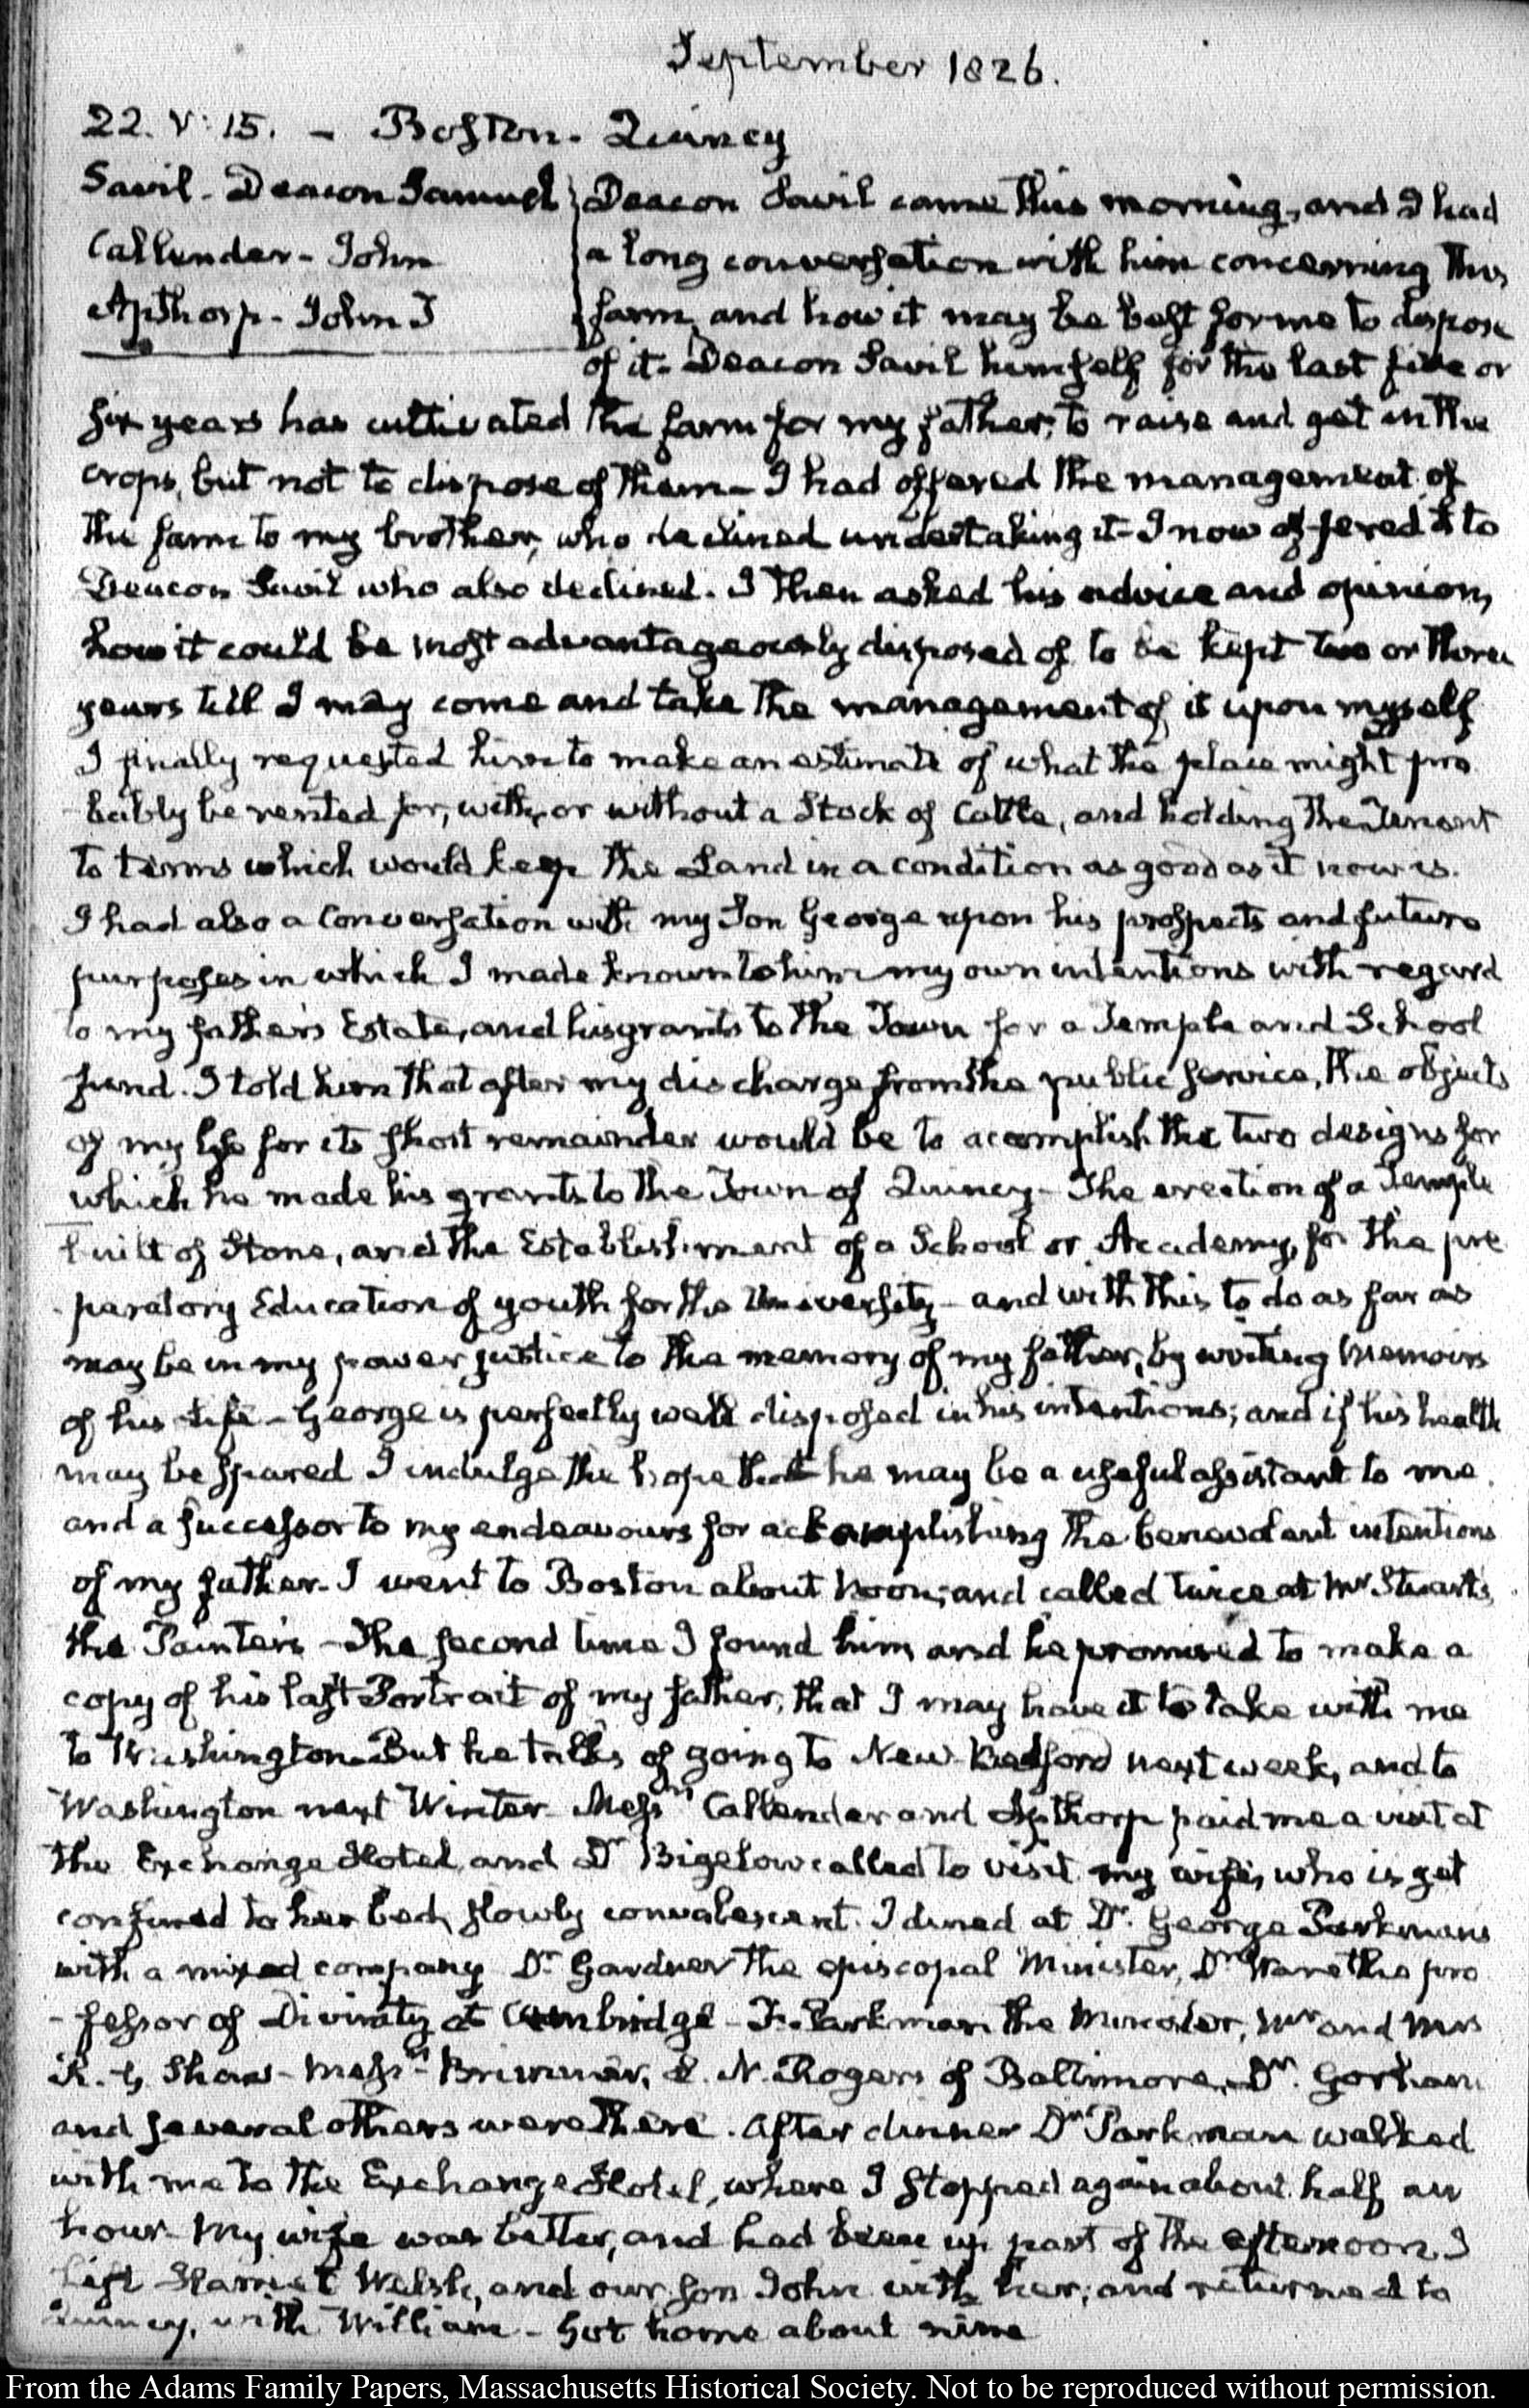 September 1826.
22. V: 15. – Boston. Quincy
Savil - Deacon Samuel
Callender - John
Apthorp - John T
Deacon Savil came this morning, and I had
a long conversation with him concerning this
farm, and how it may be best for me to dispose
of it. Deacon Savil himself for the last five or
six years has cultivated the farm for my father; to raise and get in the
crops, but not to dispose of them - I had offered the management of
the farm to my brother, who declined undertaking it - I now offered it to
Deacon Savil who also declined. I then asked his advice and opinion,
how it could be most advantageously disposed of to be kept two or three
years till I may come and take the management of it upon myself
I finally requested him to make an estimate of what the place might pro
-bably be rented for, with, or without a Stock of Cattle, and holding the Tenant
to terms which would keep the Land in a condition as good as it now is.
I had also a Conversation with my Son George upon his prospects and future
purposes in which I made known to him my own intentions with regard
to my father's Estate, and his grants to the Town for a Temple and School
fund. I told him that after my discharge from the public service, the objects
of my life for its short remainder would be to accomplish the two designs for
which he made his grants to the Town of Quincy - The erection of a Temple
built of Stone, and the Establishment of a School or Academy, for the pre
-paratory Education of youth for the University - and with this to do as far as
may be in my power justice to the memory of my father, by writing Memoirs
of his Life - George is perfectly well disposed in his intentions; and if his health
may be spared I indulge the hope that he may be a useful assistant to me
and a successor to my endeavours for accomplishing the benevolent intentions
of my father. I went to Boston about Noon; and called twice at Mr. Stuart's
the Painter's - The second time I found him, and he promised to make a
copy of his last Portrait of my father, that I may have it to take with me
to Washington. But he talks of going to New-Bedford next week, and to
Washington next Winter. Messrs Callender and Apthorp paid me a visit at
the Exchange Hotel, and Dr Bigelow called to visit my wife, who is yet
confined to her bed, slowly convalescent. I dined at Dr. George Parkman's
with a mixed company Dr. Gardner the episcopal Minister, Dr Ware the pro
-fessor of Divinity at Cambridge - F. Parkman the Minister, Mr and Mrs
R. G. Shaw - Messrs Brimmer, L. N. Rogers of Baltimore, Dr. Gorham
and several others were there. After dinner Dr Parkman walked
with me to the Exchange Hotel, where I stopped again about half an
hour. My wife was better, and had been up part of the afternoon. I
left Harriet Welsh, and our Son John with her; and returned to
Quincy, with William - Got home about nine
From the Adams Family Papers, Massachusetts Historical Society. Not to be reproduced without permission.